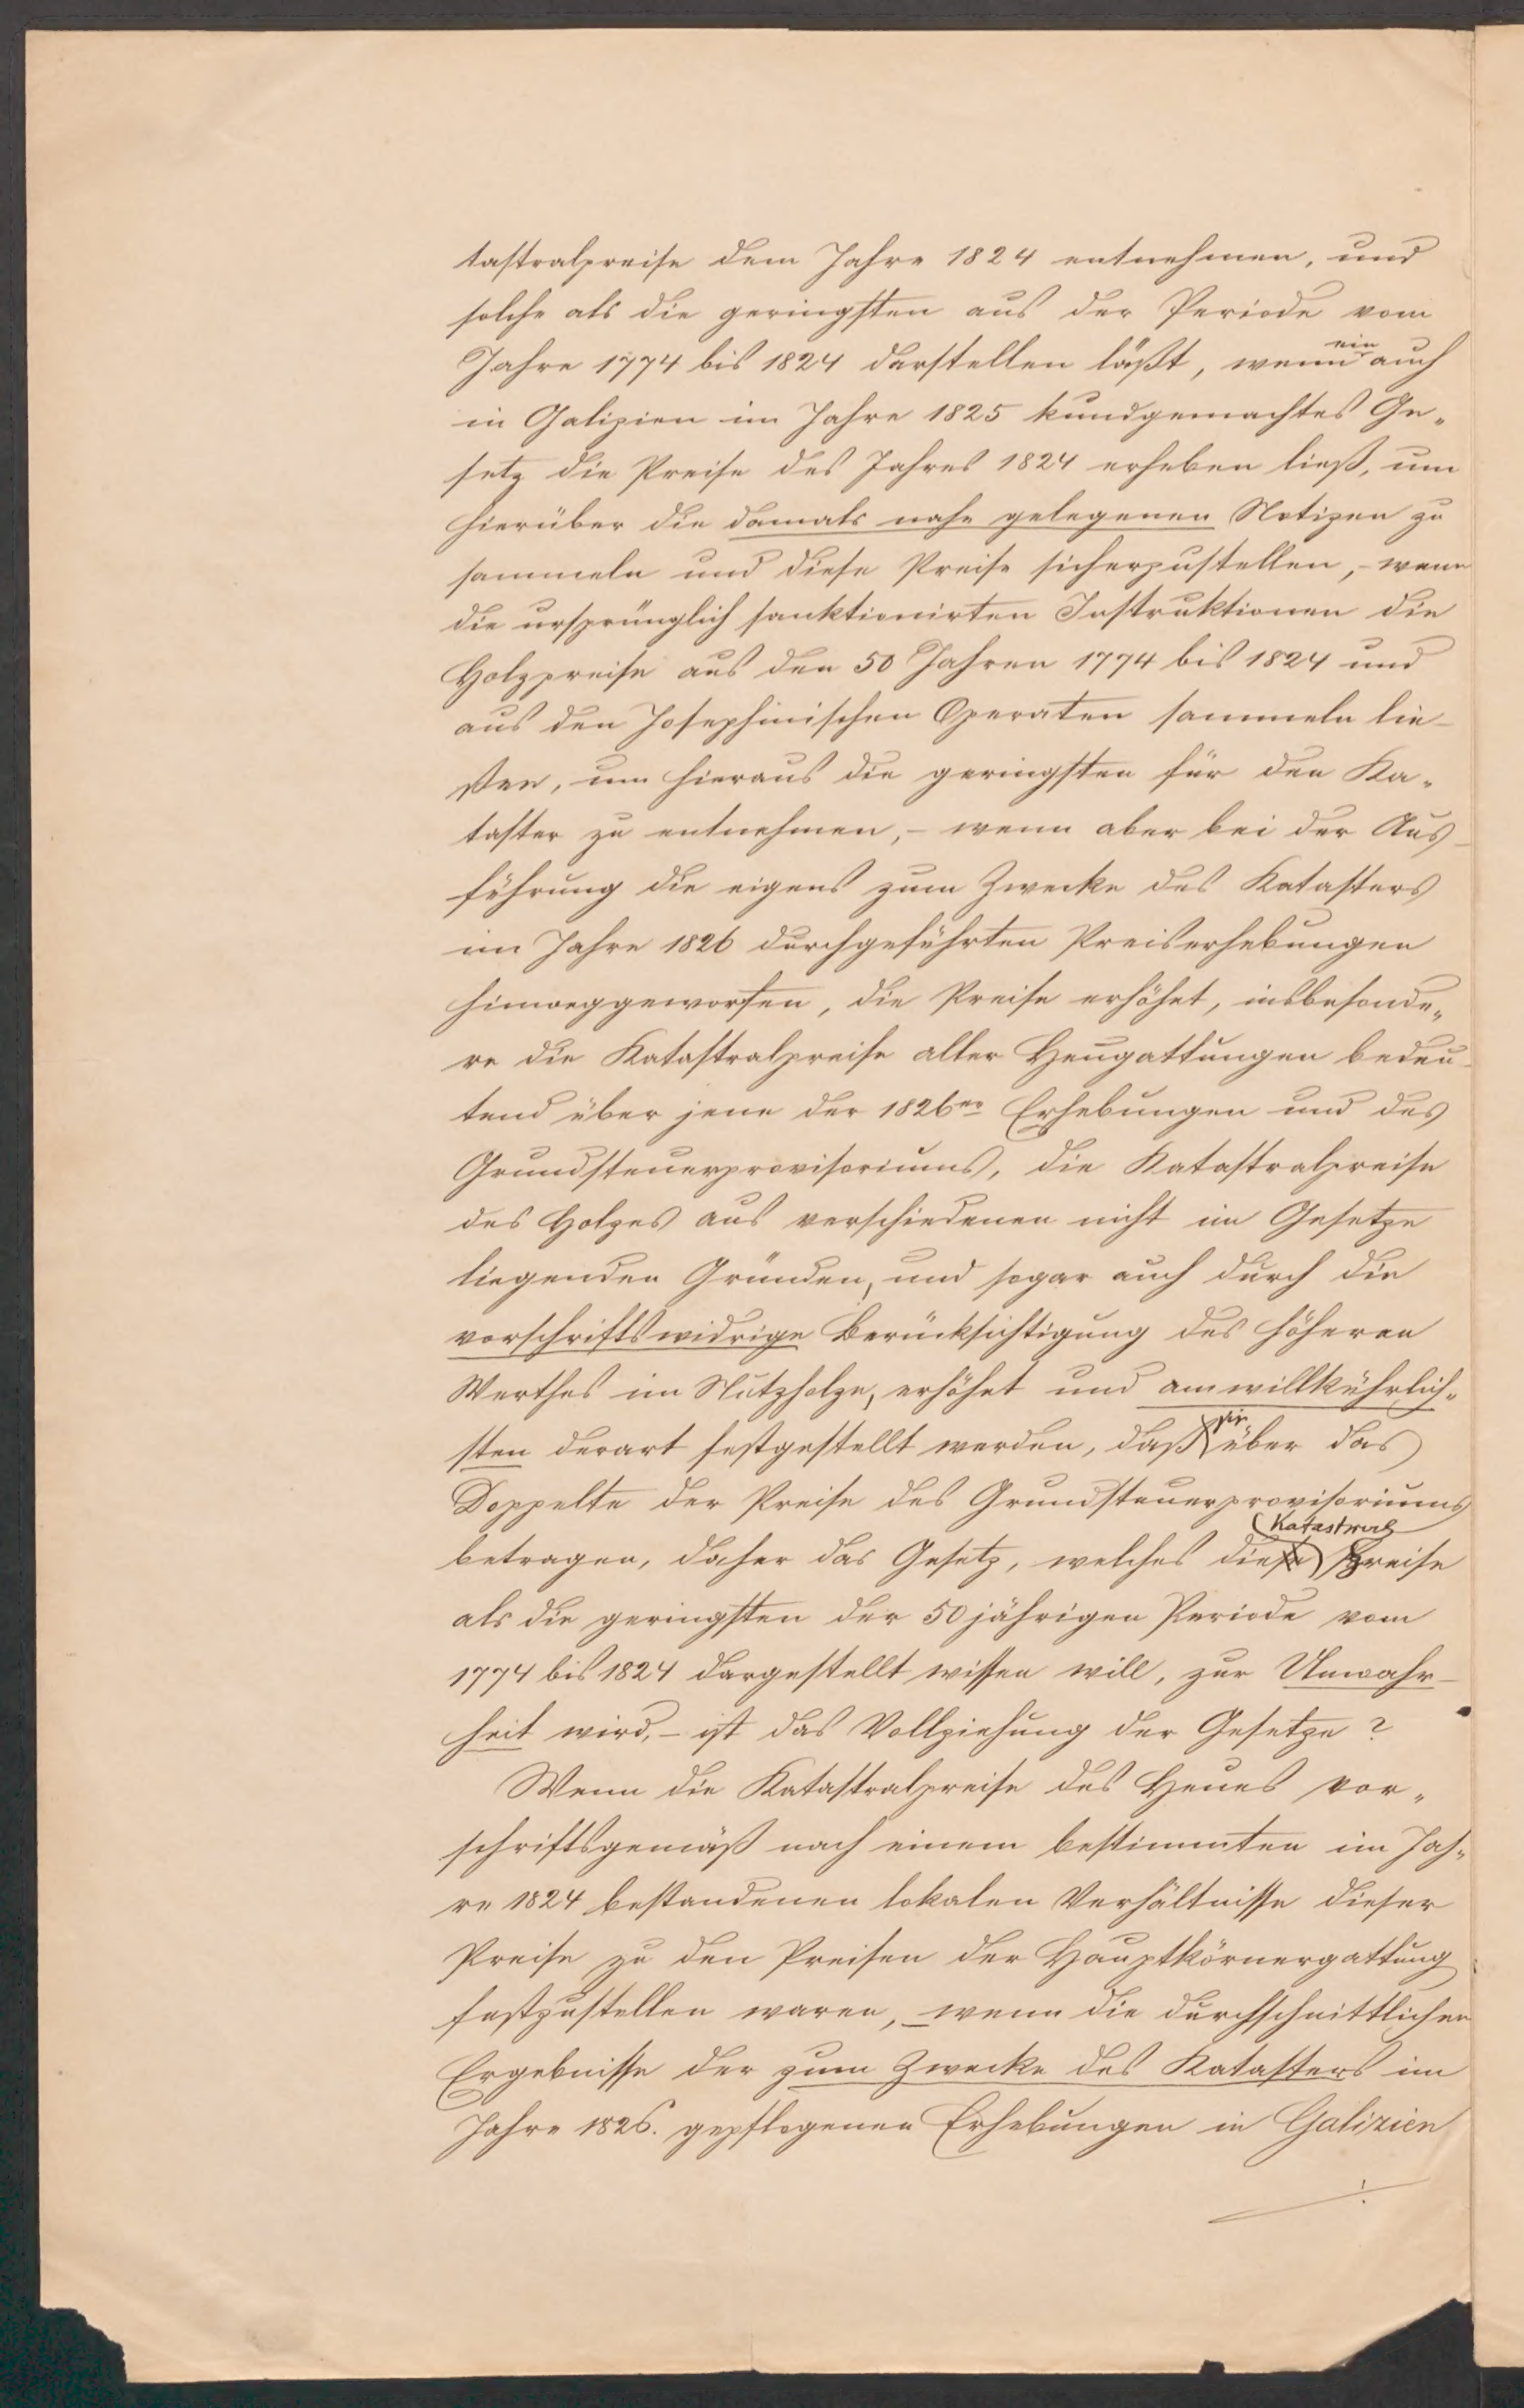 tastralpreise dem Jahre 1824 entnehmen, und
solche als die geringsten aus der Periode vom
Jahre 1774 bis 1824 darstellen läßt, wenn ein auch
in Galizien im Jahre 1825 kundgemachtes Ge„
setz die Preise des Jahres 1824 erheben ließ, um
hierüber die damals nahe gelegenen Notizen zu
sammeln und diese Preise sicherzustellen, – wenn
die ursprünglich sanktionirten Instruktionen die
Holzpreise aus den 50 Jahren 1774 bis 1824 und
aus den Josephinischen Operaten sammeln lie-
ßen, um hieraus die geringsten für den Ka„
taster zu entnehmen, – wenn aber bei der Aus-
führung die eigens zum Zwecke des Katasters
im Jahre 1826 durchgeführten Preiserhebungen
hinweggeworfen, die Preise erhöhet, insbesonde„
re die Katastralpreise aller Heugattungen bedeu-
tend über jene der 1826er Erhebungen und des
Grundsteuerprovisoriums, die Katastralpreise
des Holzes aus verschiedenen nicht im Gesetze
liegenden Gründen, und sogar auch durch die
vorschriftswidrige Berücksichtigung des höheren
Werthes im Nutzholze, erhöhet und am willkührlich„
sten derart festgestellt werden, daß sie über das
Doppelte der Preise des Grundsteuerprovisoriums
betragen, daher das Gesetz, welches die Katastral preise
als die geringsten der 50 jährigen Periode vom
1774 bis 1824 dargestellt wissen will, zur Unwahr-
heit wird, – ist das Vollziehung der Gesetze?
Wenn die Katastralpreise des Heues vor„
schriftsgemäß nach einem bestimmten im Jah„
re 1824 bestandenen lokalen Verhältnisse dieser
Preise zu den Preisen der Hauptkörnergattung
festzustellen waren, – wenn die durchschnittlichen
Ergebnisse der zum Zwecke des Katasters im
Jahre 1826. gepflogenen Erhebungen in Galizien